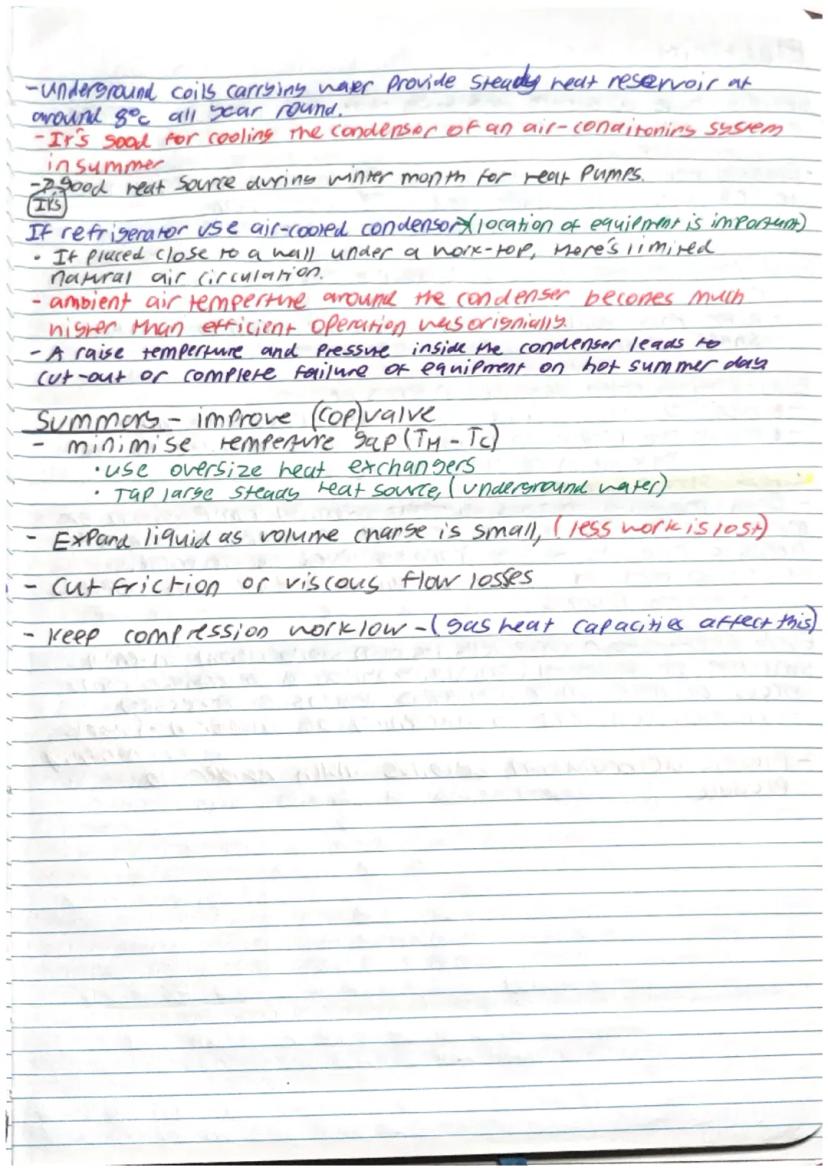 - Underground coils carrying water provide steady heat reservoir at
around 8°c all year round.
- It's good for cooling the condensor of an air-conditoning system
in summer
- good heat source during winter month for heat pumps.
It's
If refrigerator use air-cooled condensor (location of equipment is important)
• If placed close to a wall under a work-top, there's limited
natural air circulation.
- ambient air temperture around the condenser becomes much
higher than efficient operation was orignially.
- A raise temperture and pressure inside the condenser leads to
cut-out or complete failure of equipment on hot summer days
Summary - improve (COP) valve
- minimise temperture gap (TH - TC)
• use oversize heat exchangers
• Tap large steady heat source, (underground water)
- Expand liquid as volume change is small, (less work is lost)
- cut friction or viscous flow losses
- Keep compression work low - (gas heat capacities affect this)